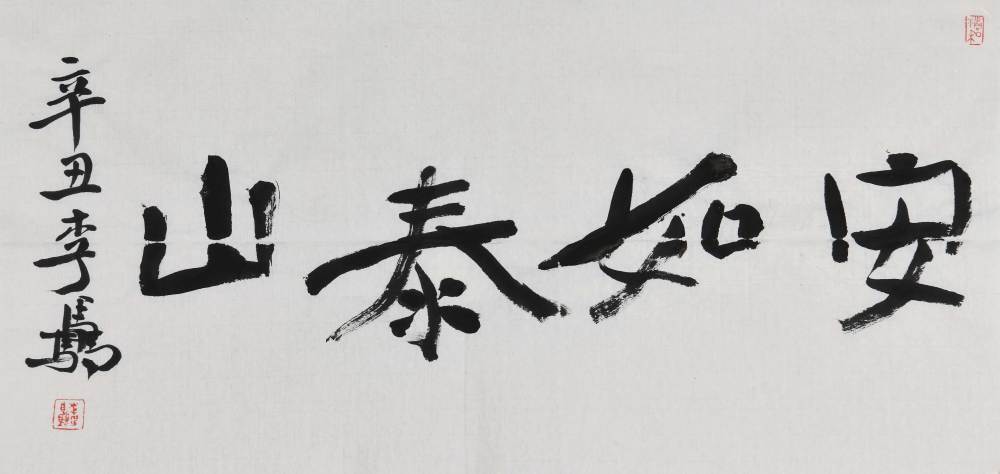 安如泰山
辛丑李